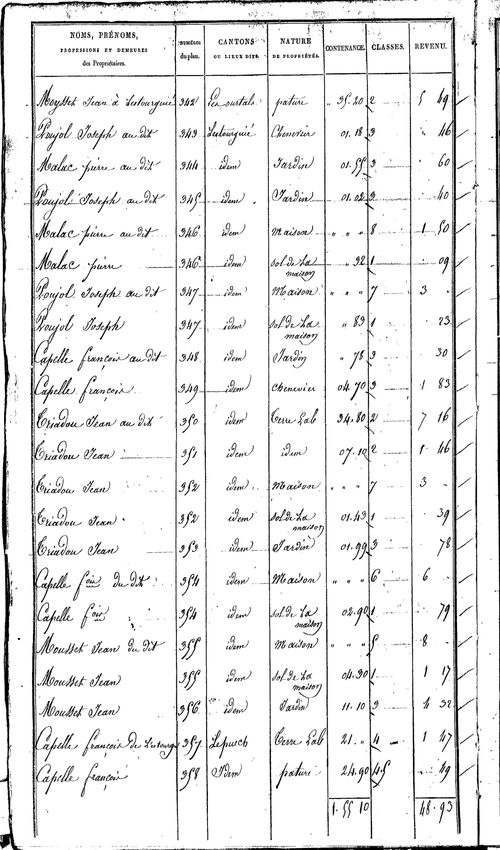 NOMS, PRÉNOMS, PROFESSIONS ET DEMEURES des Propriétaires. NUMÉROS du plan. CANTONS OU LIEUX DITS. NATURE DE PROPRIÉTÉS. CONTENANCE. CLASSES. REVENU.
Moysset Jean à Lestourguié 342 pature " 35. 20 2 5 49
Poujol Joseph au dit 343 Lestourguié Chenevier 01. 18 3 " 46
Malac pierre au dit 344 idem Jardin 01. 55 3 " 60
Poujol Joseph au dit 345 idem Jardin 01. 02 3 " 40
Malac pierre au dit 346 idem Maison " " " 8 1 50
Malac pierre 346 idem sol de La maison " 32 1 " 09
Poujol Joseph au dit 347 idem Maison " " " 7 3 "
Poujol Joseph 347 idem sol de La maison " 83 1 " 23
Capelle françois au dit 348 idem Jardin " 78 3 " 30
Capelle françois 349 idem chenevier 04. 70 3 1 83
Triadou Jean au dit 350 idem Terre Lab 34. 80 2 7 16
Triadou Jean 351 idem idem 07. 10 2 1 46
Triadou Jean 352 idem Maison " " " 7 3 "
Triadou Jean 352 idem sol de La maison 01. 43 1 " 39
Triadou Jean 353 idem Jardin 01. 99 3 " 78
Capelle fois du dit 354 idem Maison " " " 6 6 "
Capelle fois 354 idem sol de La maison 02. 90 1 " 79
Mousset Jean du dit 355 idem Maison " " " 5 8 "
Mousset Jean 355 idem sol de La maison 04. 30 1 1 17
Mousset Jean 356 idem Jardin 11. 10 3 4 32
Capelle françois de Lestourg 357 Lepuech Terre Lab 21. " 4 1 47
Capelle françois 358 Idem pature 24. 90 4.5 " 49
1. 55 10 48. 93